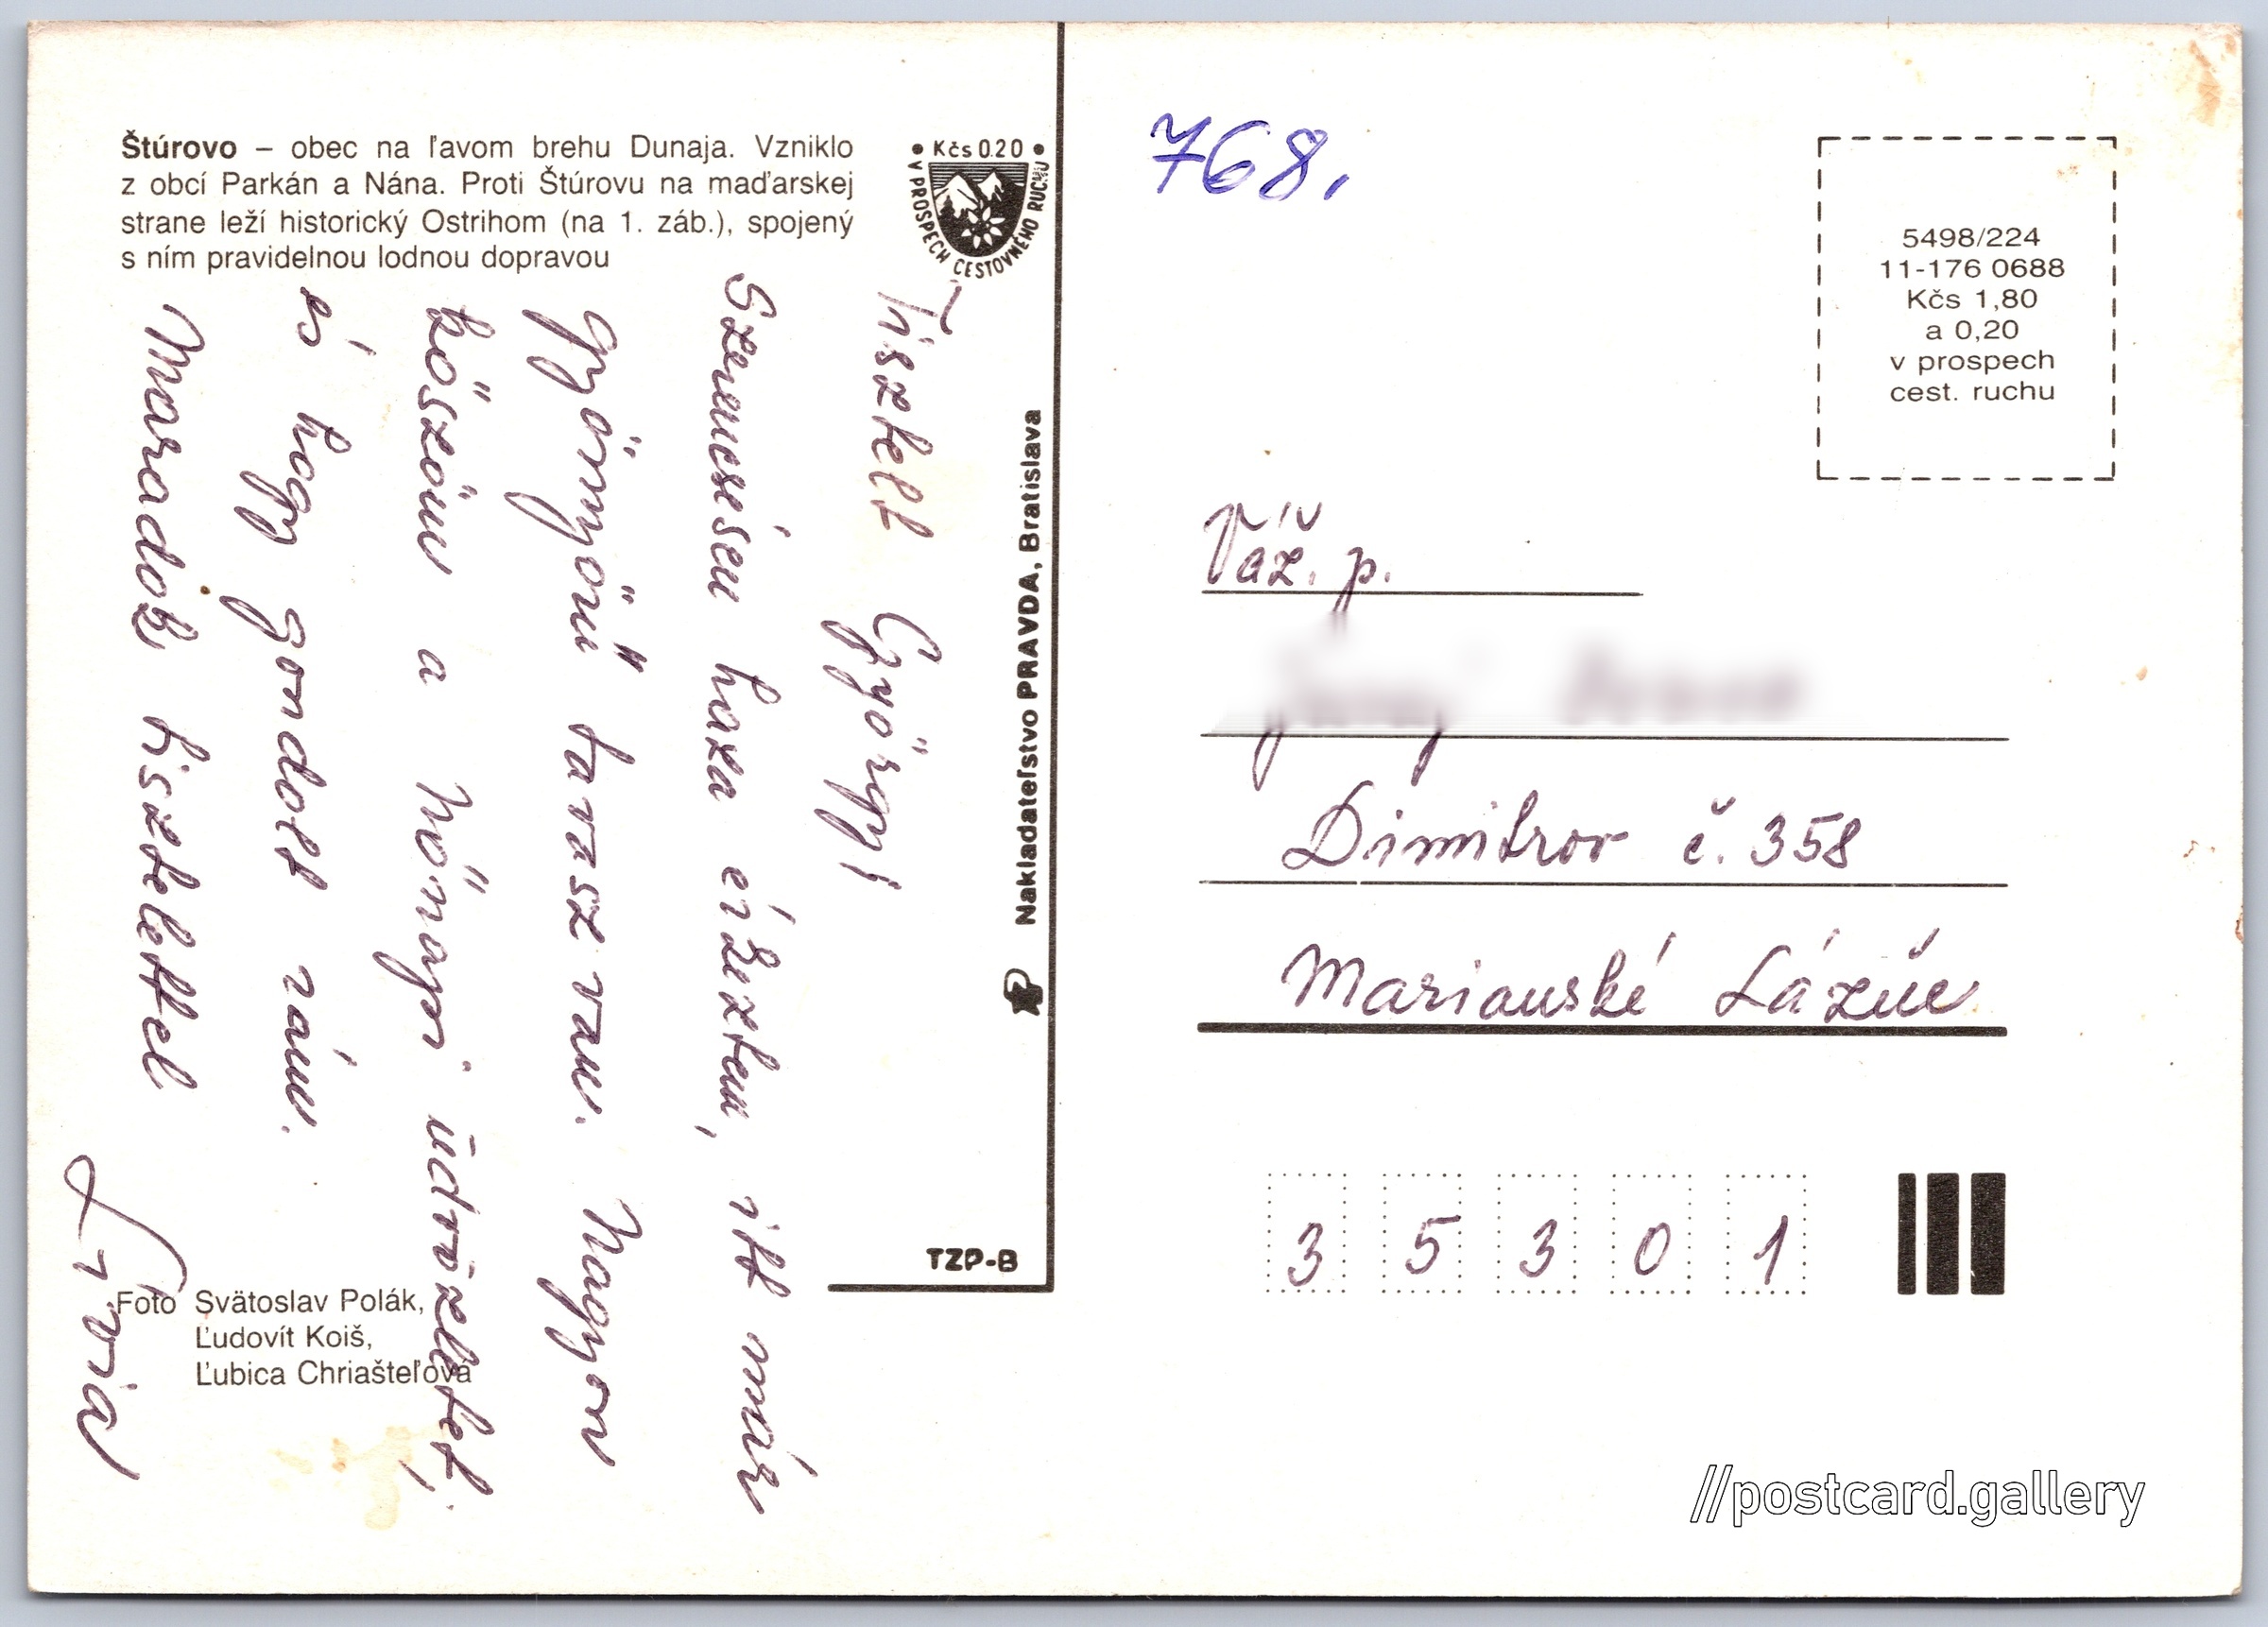 Štúrovo – obec na ľavom brehu Dunaja. Vzniklo
z obcí Parkán a Nána. Proti Štúrovu na maďarskej
strane leží historický Ostrihom (na 1. záb.), spojený
s ním pravidelnou lodnou dopravou
• Kčs 0.20 •
V PROSPECH CESTOVNÉHO RUCHU
Tisztelt György!
Szerencsésen haza érkeztem, itt már
gyönyörű tavasz van. Nagyon
köszönöm a Nőnapi üdvözletet,
és hogy gondolt rám.
Maradok tisztelettel
Lívia
Foto Svätoslav Polák,
Ľudovít Koiš,
Ľubica Chriašteľová
Nakladateľstvo PRAVDA, Bratislava
TZP-B
768.
5498/224
11-176 0688
Kčs 1,80
a 0,20
v prospech
cest. ruchu
Váž. p.
Dimitrov č. 358
Marianské Lázňe
35301
//postcard.gallery